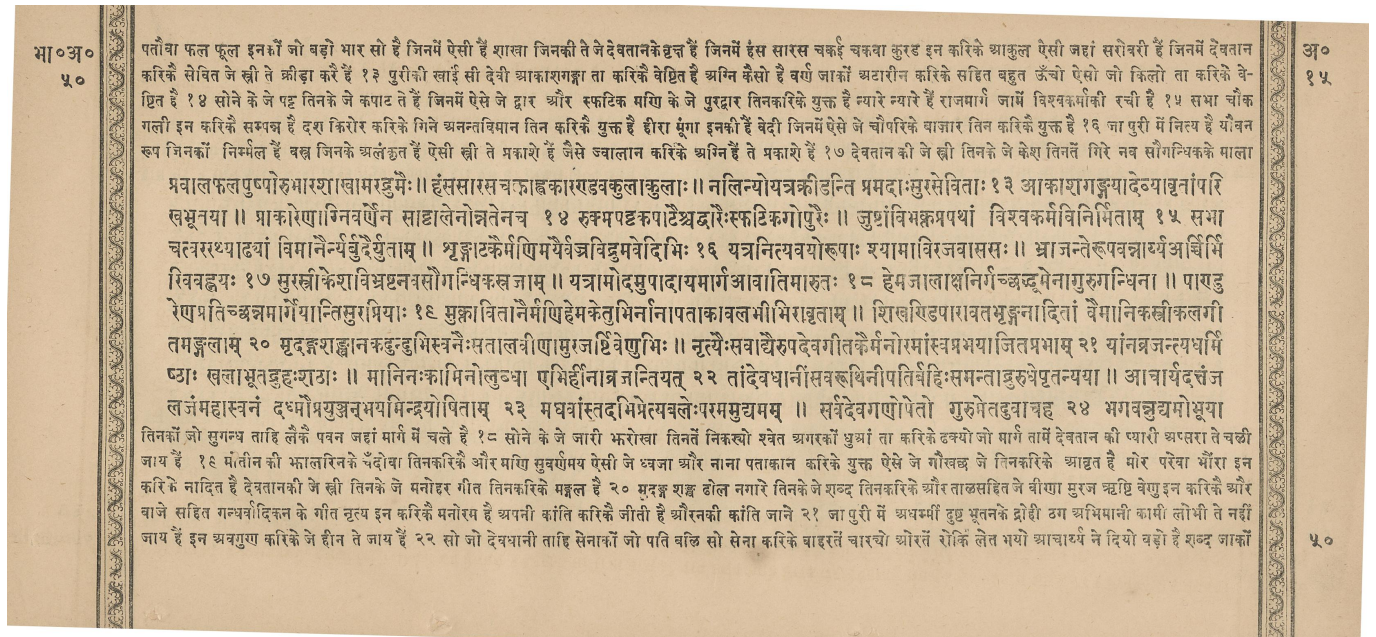 भा०अ०
५०
अ०
१५
पतौवा फल फूल इनकौं जो बड़ो भार सो है जिनमें ऐसी हैं शाखा जिनकी ते जे देवतानकेवृक्ष हैं जिनमें हंस सारस चकई चकवा कुरड इन करिके आकुल ऐसी जहां सरोवरी हैं जिनमें देवतान
करिकै सेवित जे स्त्री ते क्रीड़ा करै हैं १३ पुरीकी खाई सी देवी आकाशगङ्गा ता करिकै वेष्टित है अग्नि कैसो है वर्ण जाकों अटारीन करिकै सहित बहुत ऊँचो ऐसो जो किलो ता करिके वे-
ष्टित है १४ सोने के जे पट्ट तिनके जे कपाट ते हैं जिनमें ऐसे जे द्वार और स्फटिक मणि के जे पुरद्वार तिनकरिके युक्त है न्यारे न्यारे हैं राजमार्ग जामें विश्वकर्माकी रची है १५ सभा चौक
गली इन करिकै सम्पन्न है दश किरोर करिके गिने अनन्तविमान तिन करिकै युक्त है हीरा मूंगा इनकी हैं वेदी जिनमें ऐसे जे चौपरिके बाज़ार तिन करिकै युक्त है १६ जा पुरी में नित्य है यौवन
रूप जिनकों निर्म्मल हैं वस्त्र जिनके अलंकृत हैं ऐसी स्त्री ते प्रकाशे हैं जैसे ज्वालान करिके अग्नि हैं ते प्रकाशे हैं १७ देवतान की जे स्त्री तिनके जे केश तिनतें गिरे नव सौगन्धिकके माला
प्रवालफलपुष्पोरुभारशाखामरद्रुमैः॥ हंससारसचक्राह्वकारण्डवकुलाकुलाः॥ नलिन्योयत्रक्रीडन्ति प्रमदाःसुरसेविताः १३ आकाशगङ्गयादेव्यावृतांपरि
खभूतया॥ प्राकारेणाग्निवर्णेन साट्टालेनोन्नतेनच १४ रुक्मपट्टकपाटैश्चद्वारैःस्फटिकगोपुरैः॥ जुष्टांविभक्तप्रपथां विश्वकर्मविनिर्मिताम् १५ सभा
चत्वररथ्याढयां विमानैर्न्यर्बुदैर्युताम्॥ शृङ्गाटकैर्मणिमयैर्वज्रविद्रुमवेदिभिः १६ यत्रनित्यवयोरूपाः श्यामाविरजवाससः॥ भ्राजन्तेरूपवन्नार्य्यअर्च्चिर्भि
रिववह्नयः १७ सुरस्त्रीकेशविभ्रष्टनवसौगन्धिकस्रजाम्॥ यत्रामोदमुपादायमार्गआवातिमारुतः १८ हेमजालाक्षनिर्गच्छद्धूमेनागुरुगन्धिना॥ पाण्डु
रेणप्रतिच्छन्नमार्गेयान्तिसुरप्रियाः १९ मुक्तावितानैर्मणिहेमकेतुभिर्नानापताकावलभीभिरावृताम्॥ शिखण्डिपारावतभृङ्गनादितां वैमानिकस्त्रीकलगी
तमङ्गलाम् २० मृदङ्गशङ्खानकदुन्दुभिस्वनैःसतालवीणामुरजर्ष्टिवेणुभिः॥ नृत्यैःसवाद्यैरुपदेवगीतकैर्मनोरमांस्वप्रभयाजितप्रभाम् २१ यांनव्रजन्त्यधर्मि
ष्ठाः खलाभूतद्रुहःशठाः॥ मानिनःकामिनोलुब्धा एभिर्हीनाव्रजन्तियत् २२ तांदेवधानींसवरूथिनीपतिर्बहिःसमन्ताद्रुरुधेपृतन्यया॥ आचार्यदत्तंज
लजंमहास्वनं दध्मौप्रयुञ्जन्भयमिन्द्रयोषिताम् २३ मघवांस्तदभिप्रेत्यबलेःपरममुद्यमम्॥ सर्वदेवगणोपेतो गुरुमेतदुवाचह २४ भगवन्नुद्यमोभूया
तिनकों जो सुगन्ध ताहि लैकै पवन जहां मार्ग में चले है १८ सोने के जे जारी झरोखा तिनतें निकस्यो श्वेत अगरकों धुआं ता करिके ढक्यो जो मार्ग तामें देवतान की प्यारी अप्सरा ते चली
जाय हैं १९ मोतीन की झालरिनके चँदोवा तिनकरिकै और मणि सुवर्णमय ऐसी जे ध्वजा और नाना पताकान करिके युक्त ऐसे जे गौखछ जे तिनकरिके आवृत है मोर परेवा भौंरा इन
करिके नादित है देवतानकी जे स्त्री तिनके जे मनोहर गीत तिनकरिके मङ्गल है २० मृदङ्ग शङ्ख ढोल नगारे तिनके जे शब्द तिनकरिके और तालसहित जे वीणा मुरज ऋष्टि वेणु इन करिकै और
बाजे सहित गन्धर्वादिकन के गीत नृत्य इन करिकै मनोरम है अपनी कांति करिकै जीती है औरनकी कांति जाने २१ जा पुरी में अधर्म्मी दुष्ट भूतनके द्रोही ठग अभिमानी कामी लोभी ते नहीं
जाय हैं इन अवगुण करिके जे हीन ते जाय हैं २२ सो जो देवधानी ताहि सेनाकों जो पति बलि सो सेना करिके बाहरतें चारयो ओरतें रोकि लेत भयो आचार्य्य ने दियो बड़ो है शब्द जाकों
५०